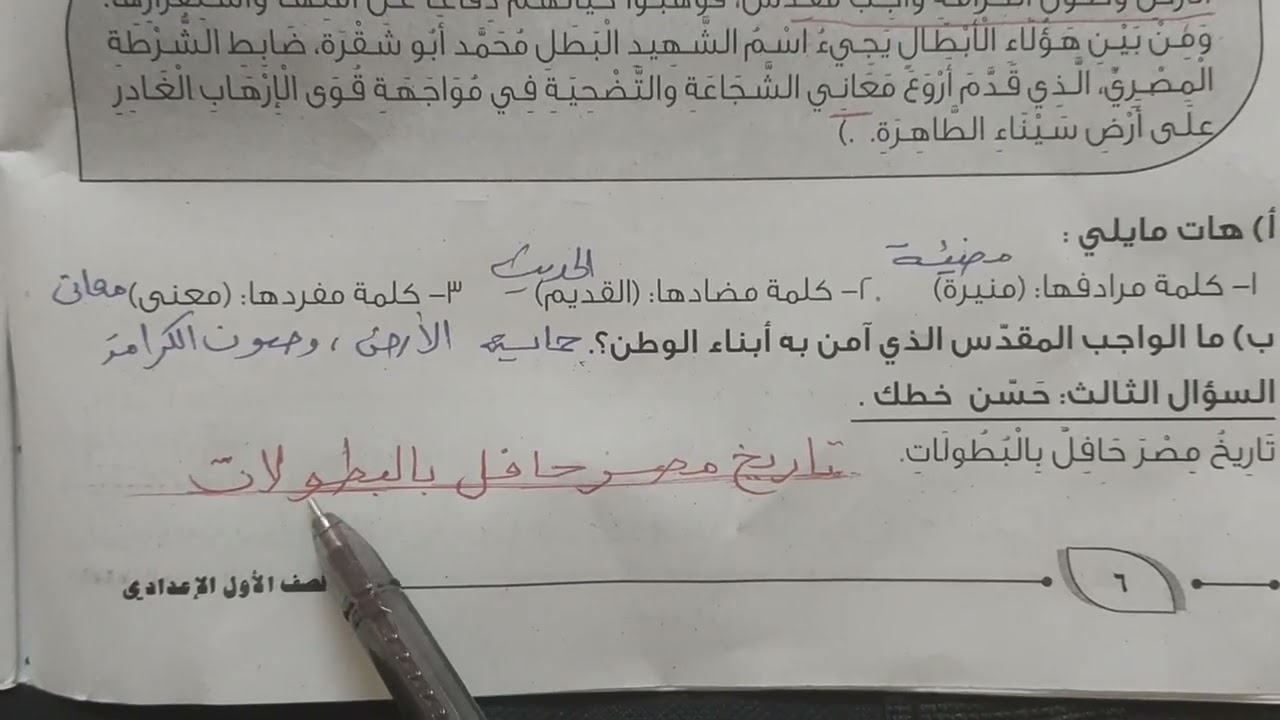 الأرض وصون الكرامة واجب مقدس، فوهبوا حياتهم دفاعًا عن أمتهم واستقرارها.
وَمِنْ بَيْنِ هَؤُلَاءِ الْأَبْطَالِ يَجِيءُ اسْمُ الشَّهِيدِ الْبَطَلِ مُحَمَّد أَبُو شُقْرَة، ضَابِطِ الشُّرْطَةِ
الْمِصْرِيِّ، الَّذِي قَدَّمَ أَرْوَعَ مَعَانِي الشَّجَاعَةِ والتَّضْحِيَةِ فِي مُوَاجَهَةِ قُوَى الْإِرْهَابِ الْغَادِرِ
عَلَى أَرْضِ سَيْنَاءِ الطَّاهِرَةِ. .)
أ) هات مايلي :
١- كلمة مرادفها: (منيرة) مضيئة ٢- كلمة مضادها: (القديم) الحديث ٣- كلمة مفردها: (معنى) معانى
ب) ما الواجب المقدّس الذي آمن به أبناء الوطن؟. حماية الأرض ، وصون الكرامة
السؤال الثالث: حَسّن خطك .
تَارِيخُ مِصْرَ حَافِلٌ بِالْبُطُولَاتِ.
تاريخ مصر حافل بالبطولات
٦
لصف الأول الإعدادي